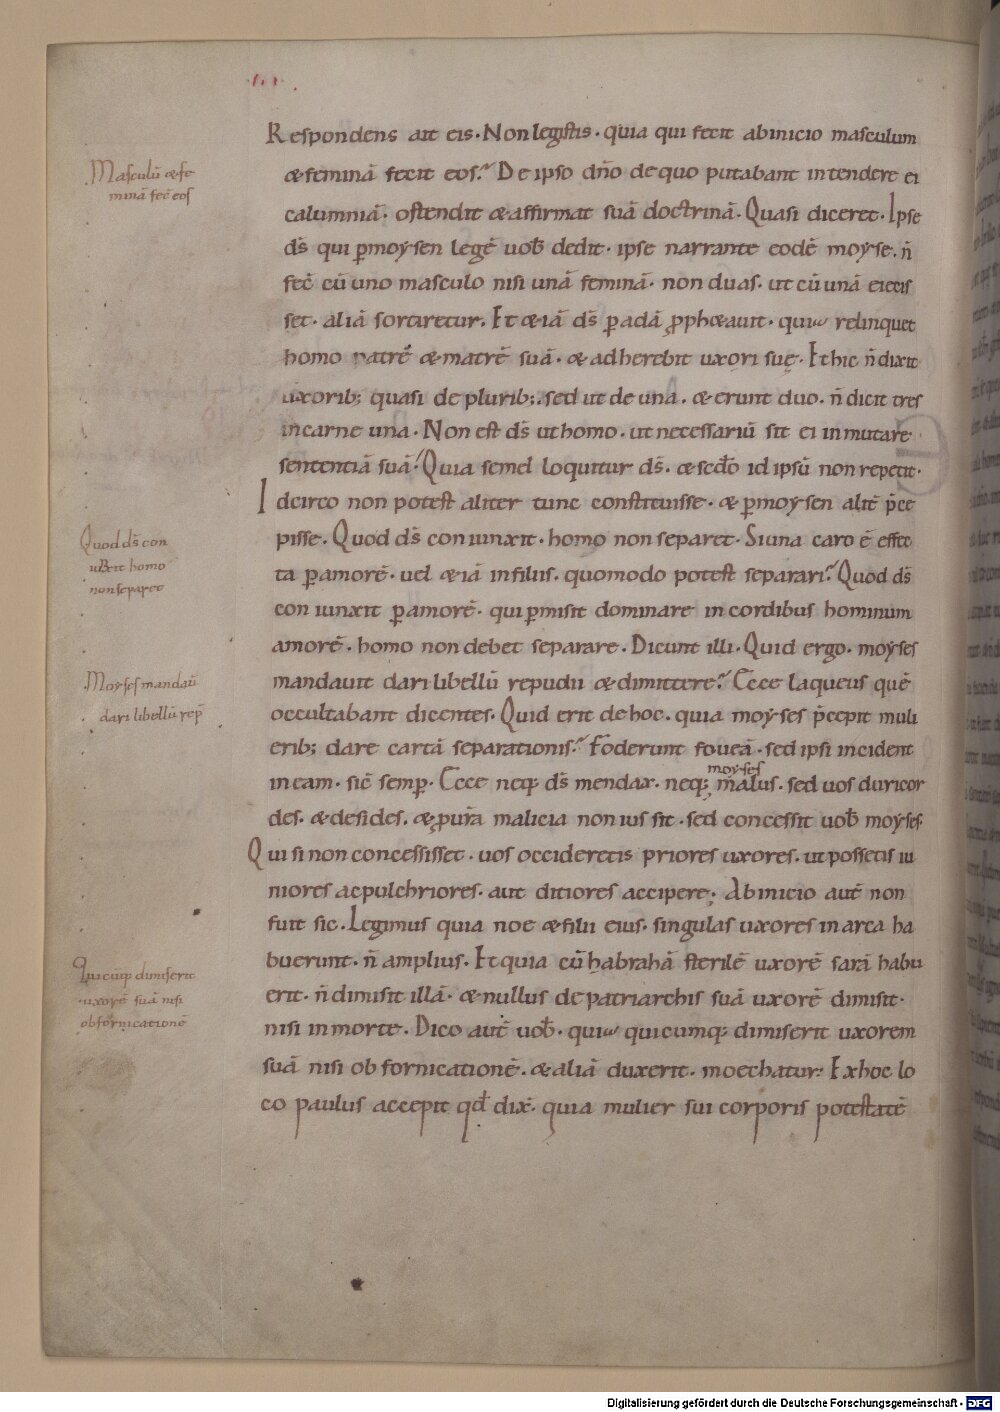 Respondens ait eis. Non legistis. quia qui fecit ab inicio masculum
Masculū & fe
minā fec̄ eos
& feminā fecit eos? De ipso dn̄o de quo putabant intendere ei
calumniā. ostendit & affirmat suā doctrinā. Quasi diceret. Ipse
ds̄ qui ꝑ moysen legē uob̄ dedit. ipse narrante eodē moyse. n̄
fec̄ cū uno masculo nisi unā feminā. non duas. ut cū unā eiecis
set. aliā sortiretur. Et &iā ds̄ ꝑ adā ꝓph&auit. quia relinquet
homo patrē & matrē suā. & adherebit uxori suę. Et hic n̄ dixit
uxorib; quasi de plurib;. sed ut de una. & erunt duo. n̄ dicit tres
in carne una. Non est ds̄ ut homo. ut necessariū sit ei inmutare
sententiā suā. Quia semel loquitur ds̄. & sedo id ipsū non repetit.
Idcirco non potest aliter tunc constituisse. & ꝑ moysen alit̄ p̄ce
pisse. Quod ds̄ coniunxit. homo non separet. Si una caro ē effec
Quod ds̄ con
iūxit homo
non separet
ta ꝑ amorē. uel &iā in filiis. quomodo potest separari? Quod ds̄
coniunxit ꝑ amorē. qui ꝑmisit dominare in cordibus hominum
amorē. homo non debet separare. Dicunt illi. Quid ergo. moyses
Moyses mandau̅
dari libellū rep̄
mandauit dari libellū repudii & dimittere? Ecce laqueus quē
occultabant dicentes. Quid erit de hoc. quia moyses p̄cepit muli
erib; dare cartā separationis? Foderunt foueā. sed ipsi incident
in eam. sic̄ semp̄. Ecce neq; ds̄ mendax. neq; moyses malus. sed uos duricor
des. & desides. & ꝓpt̄ ur̄a malicia non ius sit. sed concessit uob̄ moyses.
Qui si non concessisset. uos occideretis priores uxores. ut possetis iu
niores ac pulchriores. aut ditiores accipere. Ab inicio aut̄ non
fuit sic. Legimus quia noe & filii eius. singulas uxores in arca ha
buerunt. n̄ amplius. Et quia cū habrahā sterilē uxorē sarā habu
Quicūq; dimiserit
uxorē suā nisi
ob fornicationē
erit. n̄ dimisit illā. & nullus de patriarchis suā uxorē dimisit.
nisi in morte. Dico aut̄ uob̄. quia quicumq; dimiserit uxorem
suā nisi ob fornicationē. & aliā duxerit. moechatur. Ex hoc lo
co paulus accepit qd̄ dix̄. quia mulier sui corporis potestatē
Digitalisierung gefördert durch die Deutsche Forschungsgemeinschaft - DFG